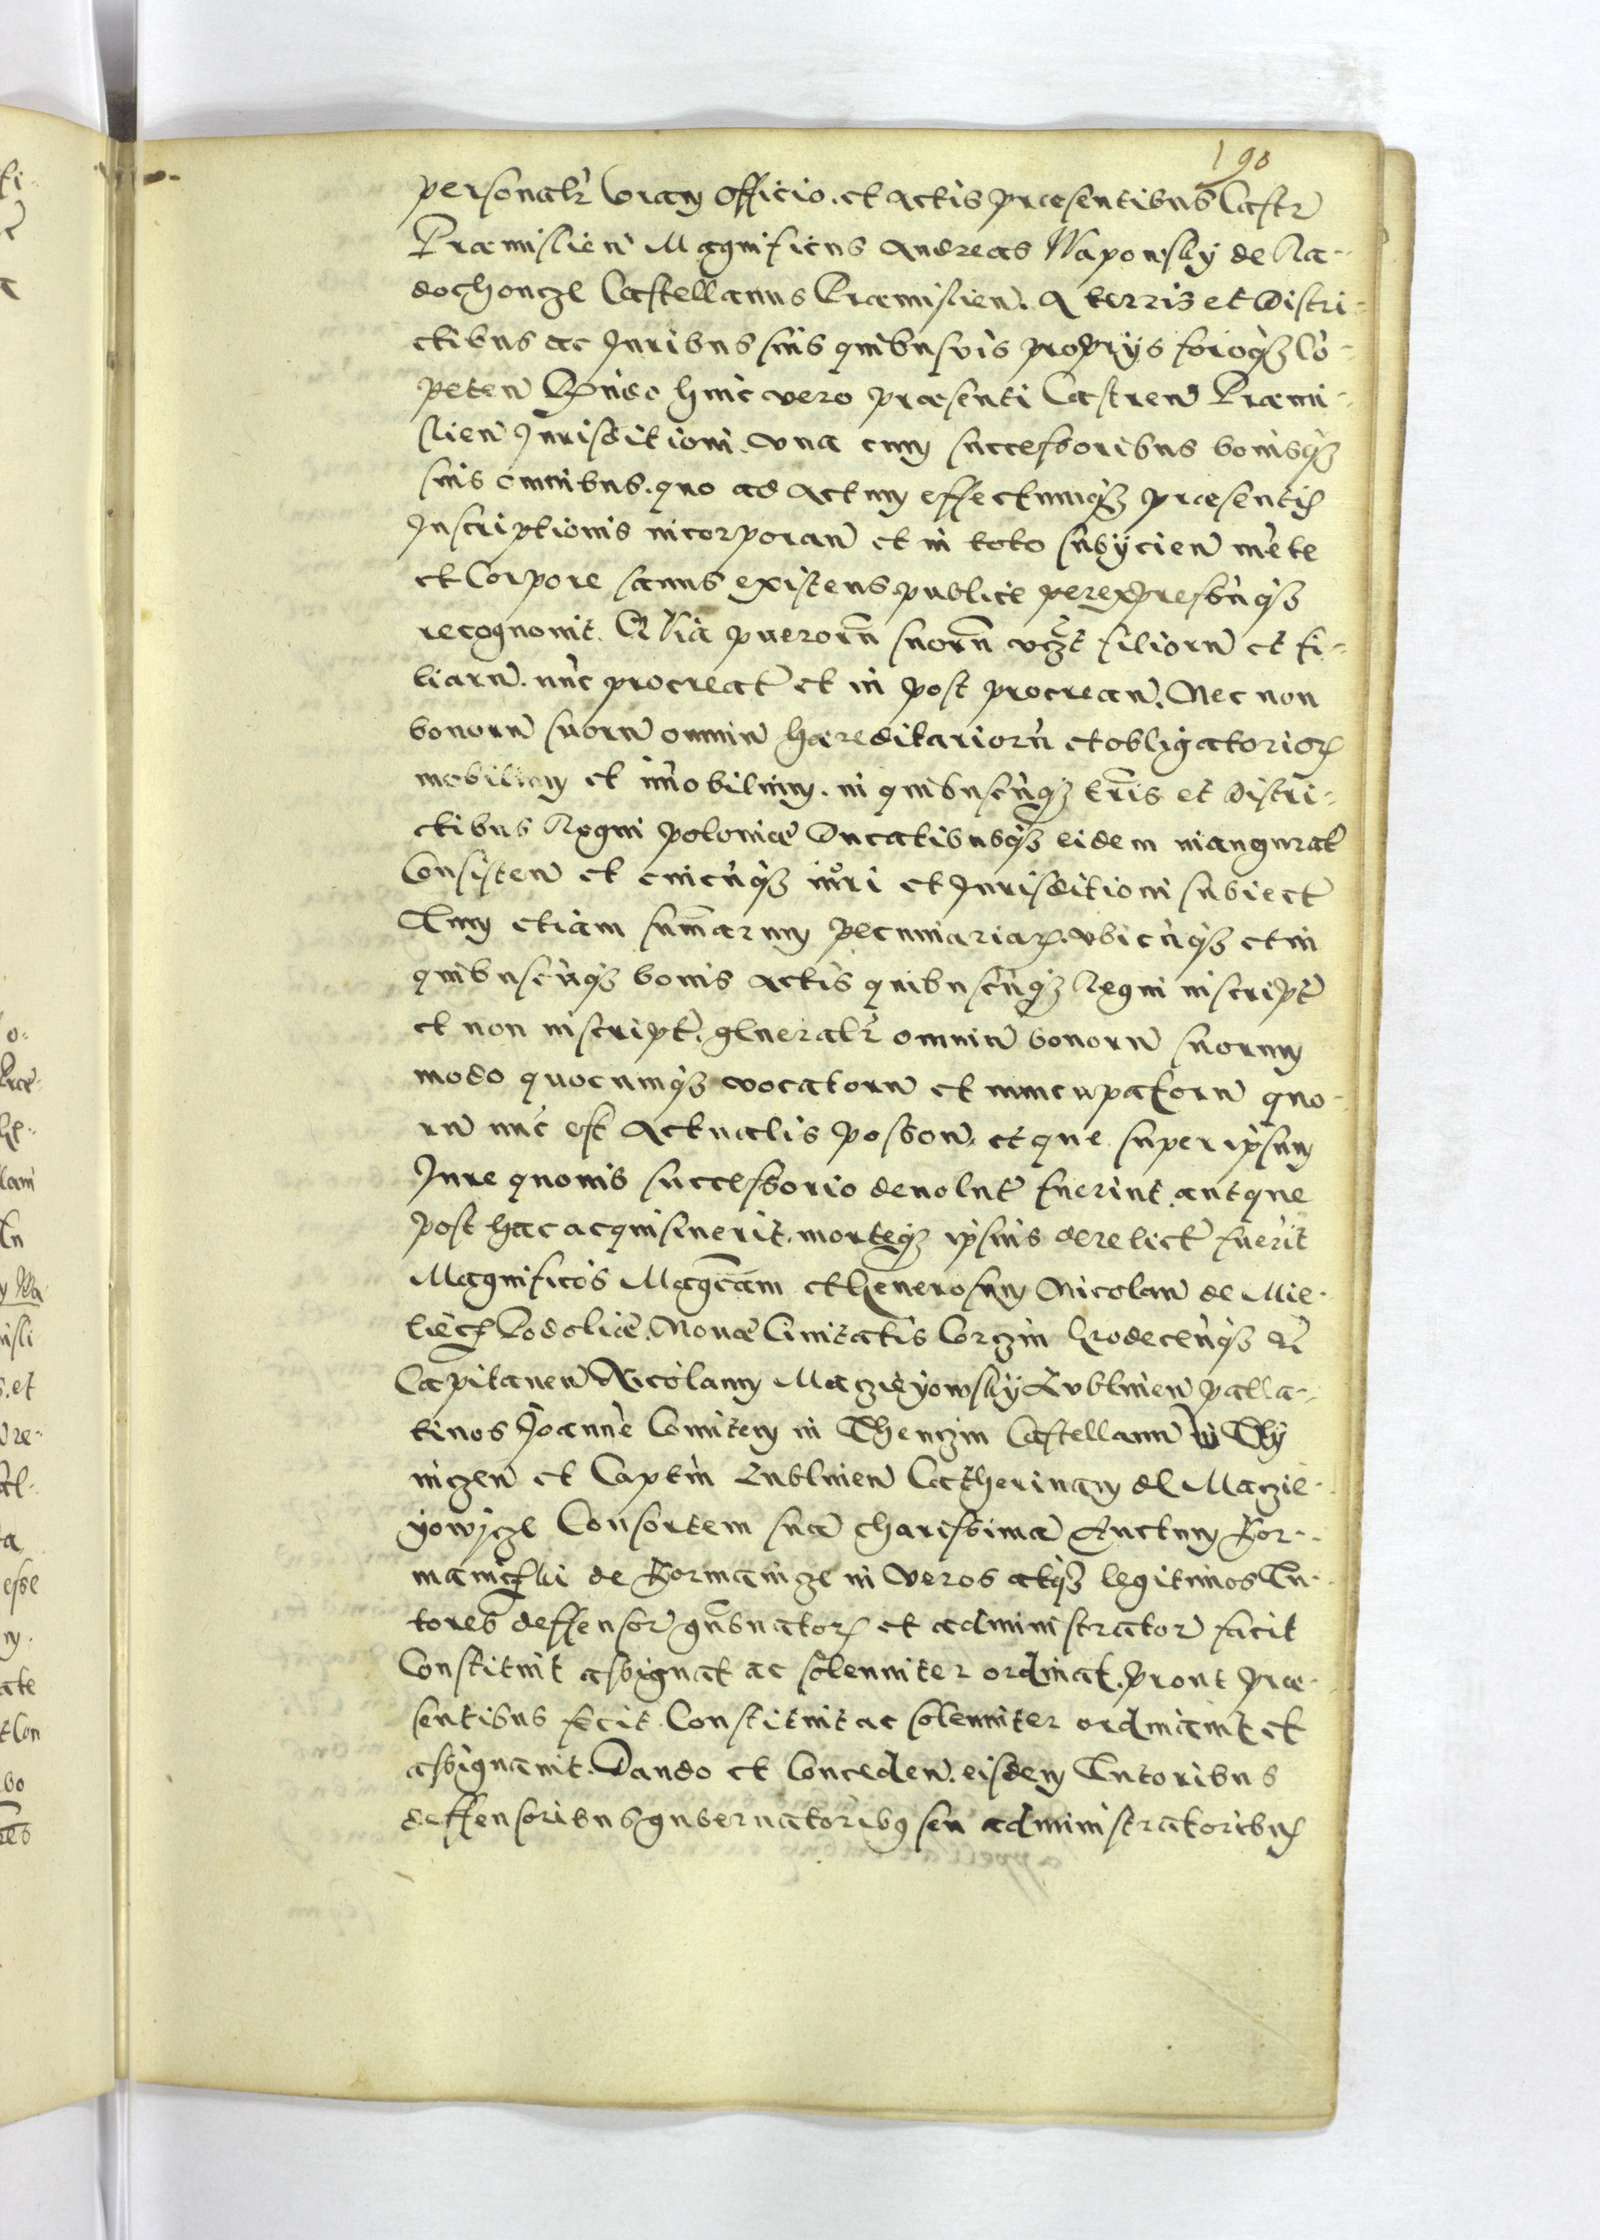 190
personalr coram officio. et actis praesentibus Castr
Praemislien Magnificus Andreas Wapowsky de Ra-
dochoncze Castellanus Praemislien. A terris et Distri-
ctibus ac Juribus suis quibusvis proprys foroq3 Co-
peten hinc vero praesenti Castren Praemi-
slien Jurisditioni. una cum successoribus bonisq3
suis omnibus. quo ad actum effectumq3 praesentis
Inscriptionis incorporan et in toto subycien mete
et Corpore sanus existens publice per expressumq3
recognovit. Quia puerorum suorum vczt filiorum et fi-
liarum. nunc procreat et in post procrean. Nec non
bonorum suorum omnium haereditariorum et obligatorior
mobilium et immobilium. in quibuscunq3 tris et Distri-
ctibus Regni Poloniae Ducatibusq3 eidem inangurat
Consisten et cuicunq3 iuri et Jurisditioni subiect
Tum etiam summarum pecuniariar. ubicunq3 et in
quibuscunq3 bonis actis quibuscunq3 Regni inscript
et non inscript. generalr omnium bonorum suorum
modo quocumq3 vocatorum et nuncupatorum quo-
rum nunc est actualis posson. et que super ipsum
Jure quovis successorio devolut fuerint. aut que
post hac acquisiverit. morteq3 ipsius derelict fuerit
Magnificos Magcam et Generosum Nicolaum de Mie-
lecz Podoliae. Novae Civitatis Corczin Grodecenq3 
Capitaneum Nicolaum Maczieyowsky Lublinen palla-
tinos Joannem Comitem in Thenczin Castellanum Woy
niczen et Captm Lublinen Catherinam de Maczie-
yowycze Consortem suam charissimam Auctum For-
de Formanicze in veros atq3 legitimos Tu-
tores deffensor gubnator et administrator facit
Constituit assignat ac solenniter ordinat. prout prae-
sentibus fecit. Constituit ac solenniter ordinavit et
assignavit. Dando et Conceden. eisdem Tutoribus
deffensoribus gubernatoribus seu administratoribus